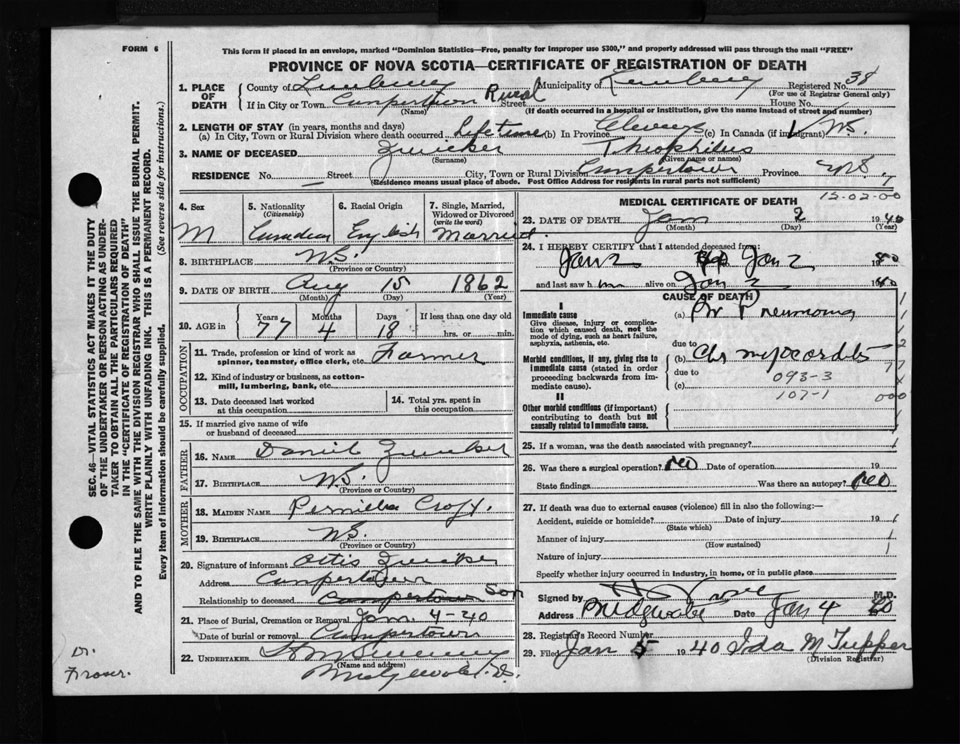 FORM 6
This form if placed in an envelope, marked "Dominion Statistics—Free, penalty for improper use $300," and properly addressed will pass through the mail "FREE"
PROVINCE OF NOVA SCOTIA—CERTIFICATE OF REGISTRATION OF DEATH
1. PLACE OF DEATH
County of Lunenburg Municipality of Lunenburg Registered No. 38
(For use of Registrar General only)
If in City or Town Campertown Rural Street House No.
(Name) (If death occurred in a hospital or institution, give the name instead of street and number)
2. LENGTH OF STAY (in years, months and days)
(a) In City, Town or Rural Division where death occurred Lifetime (b) In Province Always (c) In Canada (if immigrant) N.S.
3. NAME OF DECEASED Zwicker Theophilus
(Surname) (Given name or names)
RESIDENCE No. — Street City, Town or Rural Division Campertown Province N.S.
(Residence means usual place of abode. Post Office Address for residents in rural parts not sufficient)
4. Sex M
5. Nationality (Citizenship) Canadian
6. Racial Origin English
7. Single, Married, Widowed or Divorced (write the word) Married
8. BIRTHPLACE N.S.
(Province or Country)
9. DATE OF BIRTH Aug 15 1862
(Month) (Day) (Year)
10. AGE in Years 77 Months 4 Days 18 If less than one day old hrs. or min.
OCCUPATION
11. Trade, profession or kind of work as spinner, teamster, office clerk, etc. Farmer
12. Kind of industry or business, as cotton-mill, lumbering, bank, etc.
13. Date deceased last worked at this occupation
14. Total yrs. spent in this occupation
15. If married give name of wife or husband of deceased
FATHER
16. NAME Daniel Zwicker
17. BIRTHPLACE N.S.
(Province or Country)
MOTHER
18. MAIDEN NAME Permilla Croft.
19. BIRTHPLACE N.S.
(Province or Country)
20. Signature of informant Ottis Zwicker
Address Campertown
Relationship to deceased Campertown Son
21. Place of Burial, Cremation or Removal Jan 4-40
Date of burial or removal Campertown
22. UNDERTAKER
(Name and address)
MEDICAL CERTIFICATE OF DEATH
12-02-00
23. DATE OF DEATH Jan 2 1940
(Month) (Day) (Year)
24. I HEREBY CERTIFY that I attended deceased from:
Jan 2 Jan 2 1940
and last saw him alive on Jan 2 1940
CAUSE OF DEATH
I
Immediate cause
Give disease, injury or complication which caused death, not the mode of dying, such as heart failure, asphyxia, asthenia, etc.
(a) Pneumonia
due to
Morbid conditions, if any, giving rise to immediate cause (stated in order proceeding backwards from immediate cause).
(b) Chr myocarditis
due to
093-3
(c)
107-1
000
II
Other morbid conditions (if important) contributing to death but not causally related to immediate cause.
25. If a woman, was the death associated with pregnancy?
26. Was there a surgical operation? no Date of operation 19
State findings Was there an autopsy? no
27. If death was due to external causes (violence) fill in also the following:—
Accident, suicide or homicide? Date of injury 19
(State which)
Manner of injury
(How sustained)
Nature of injury
Specify whether injury occurred in industry, in home, or in public place
Signed by M.D.
Address Bridgewater Date Jan 4 40
28. Registrar's Record Number
29. Filed Jan 5 1940 Ida M Tupper
(Division Registrar)
SEC. 46—VITAL STATISTICS ACT MAKES IT THE DUTY
OF THE UNDERTAKER OR PERSON ACTING AS UNDER-
TAKER TO OBTAIN ALL THE PARTICULARS REQUIRED
IN THE "CERTIFICATE OF REGISTRATION OF DEATH"
AND TO FILE THE SAME WITH THE DIVISION REGISTRAR WHO SHALL ISSUE THE BURIAL PERMIT.
WRITE PLAINLY WITH UNFADING INK. THIS IS A PERMANENT RECORD.
Every item of information should be carefully supplied. (See reverse side for instructions.)
Dr.
Fraser.